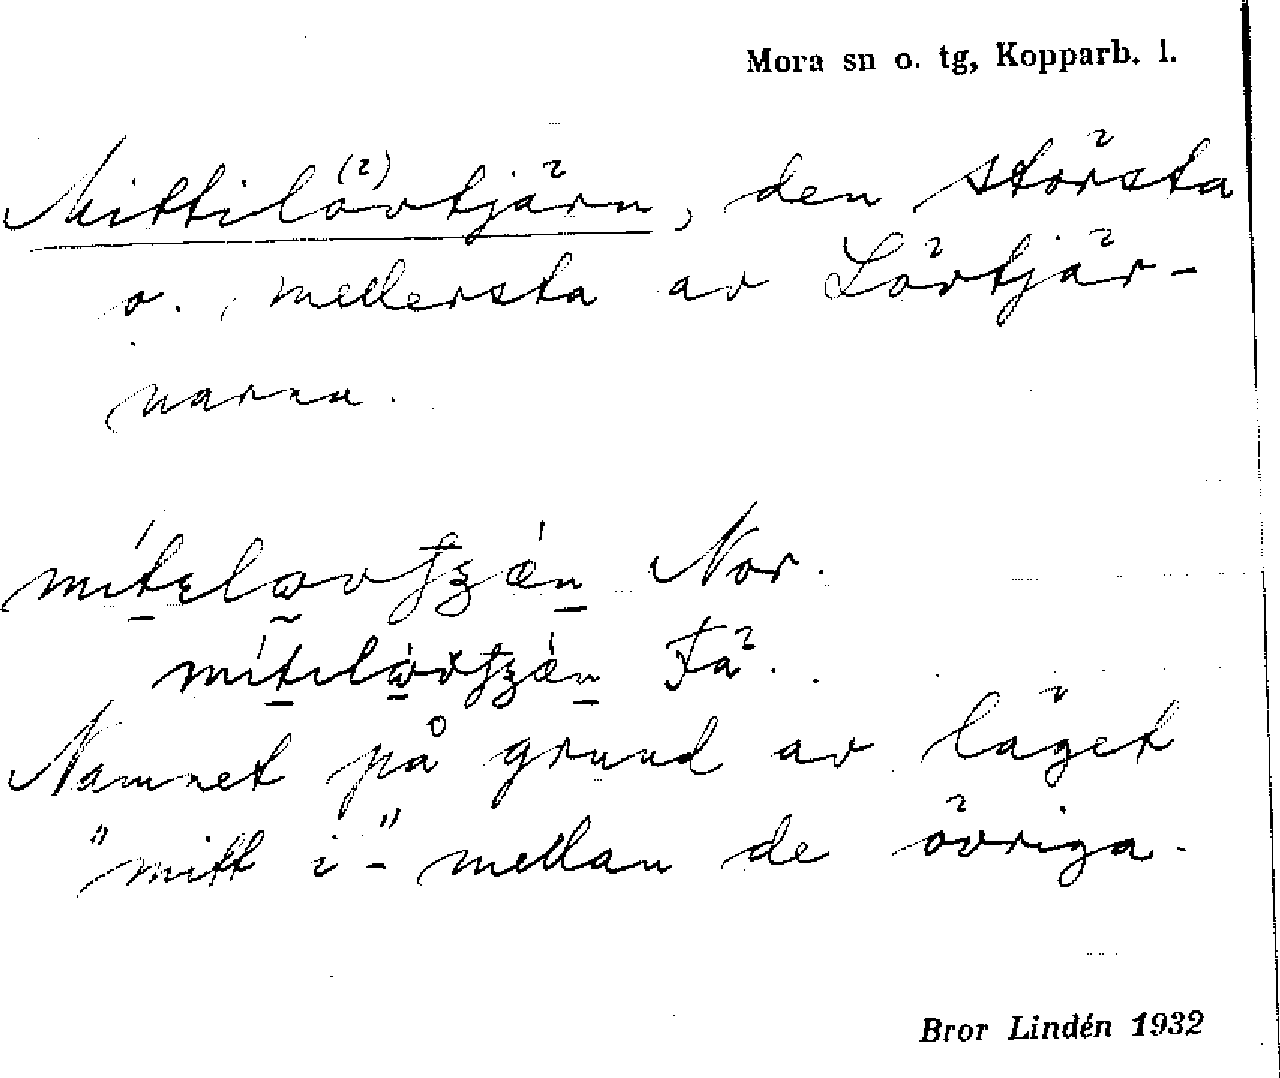 Mora sn o. tg, Kopparb. l.
Mittilövtjärn, den största
o. mellersta av Lövtjär-
narna.
Nor.
Fä.
Namnet på grund av läget
"mitt i-" mellan de övriga.
Bror Lindén 1932